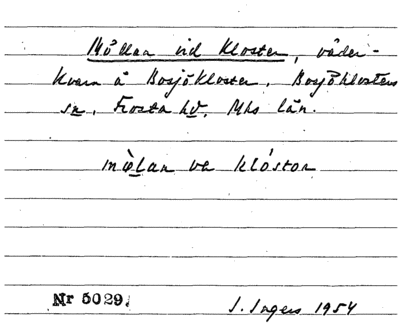 Möllan vid Kloster, väder-
kvarn å Bosjökloster, Bosjöklosters
sn, Frosta hd, Mhs län.
mø̀lan ve klóstər
Nr 5029.
I. Ingers 1954